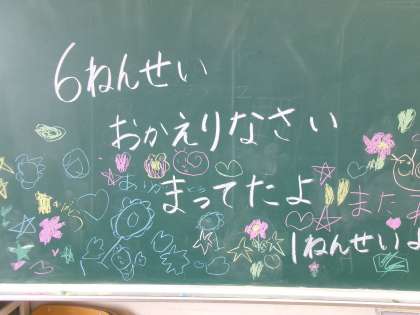 6ねんせい
おかえりなさい
まってたよ
また
1ねんせいよ